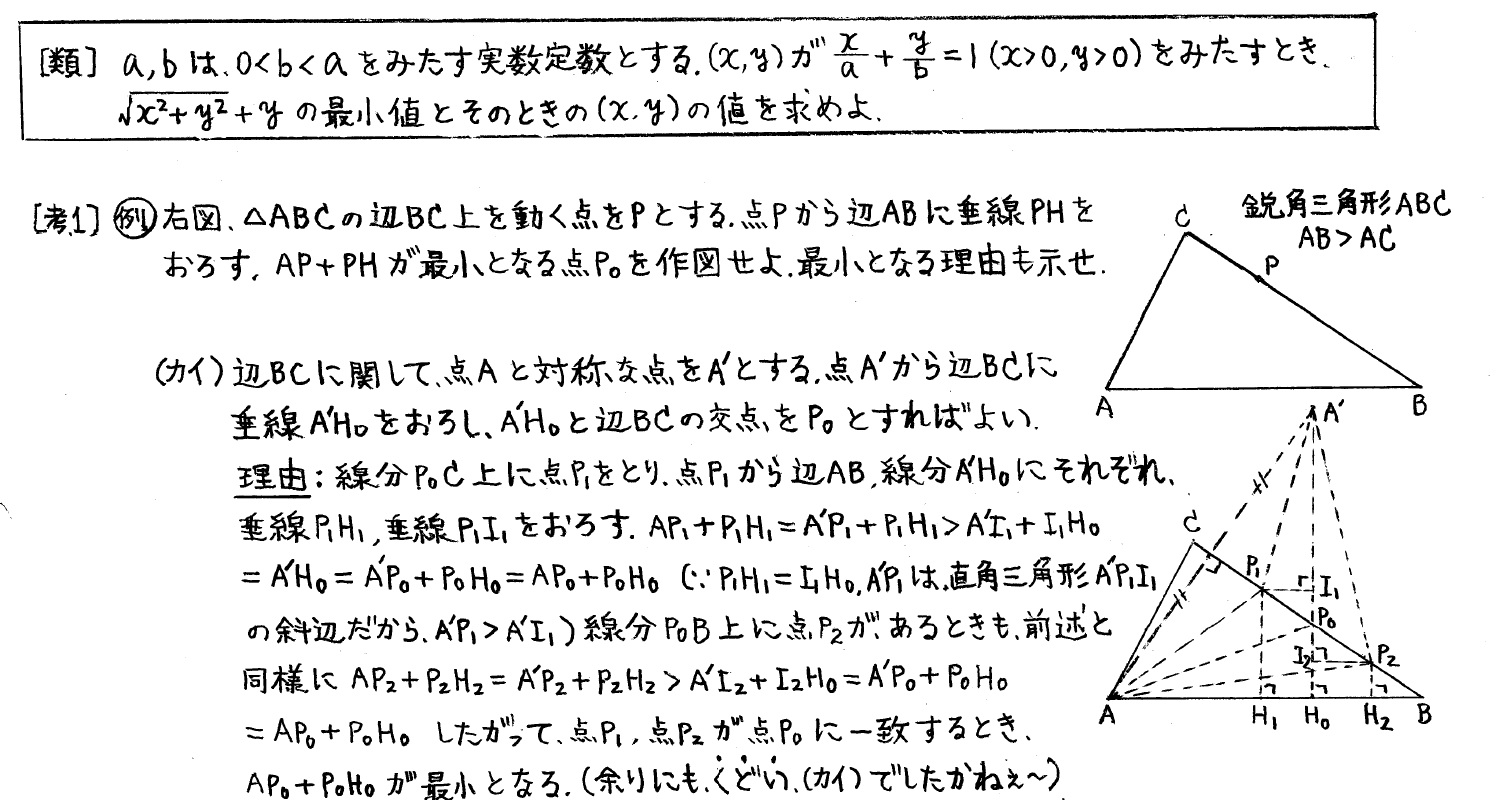 [類] a,bは、0<b<aをみたす実数定数とする。(x,y)が x/a + y/b = 1 (x>0,y>0)をみたすとき、
√(x²+y²)+y の最小値とそのときの(x,y)の値を求めよ。
[考1] 例1 右図、△ABCの辺BC上を動く点をPとする。点Pから辺ABに垂線PHを
おろす。AP+PHが最小となる点P₀を作図せよ。最小となる理由も示せ。
鋭角三角形ABC
AB>AC
C
P
A
B
(カイ) 辺BCに関して、点Aと対称な点をA′とする。点A′から辺BCに
垂線A′H₀をおろし、A′H₀と辺BCの交点をP₀とすればよい。
理由:線分P₀C上に点P₁をとり、点P₁から辺AB、線分A′H₀にそれぞれ、
垂線P₁H₁,垂線P₁I₁をおろす。AP₁+P₁H₁=A′P₁+P₁H₁>A′I₁+I₁H₀
=A′H₀=A′P₀+P₀H₀=AP₀+P₀H₀ (∵P₁H₁=I₁H₀,A′P₁は、直角三角形A′P₁I₁
の斜辺だから、A′P₁>A′I₁) 線分P₀B上に点P₂が、あるときも、前述と
同様に AP₂+P₂H₂=A′P₂+P₂H₂>A′I₂+I₂H₀=A′P₀+P₀H₀
=AP₀+P₀H₀ したがって、点P₁,点P₂が点P₀に一致するとき、
AP₀+P₀H₀が最小となる。(余りにも、くどい、(カイ)でしたかねぇ〜)
A′
C
P₁
I₁
P₀
I₂
P₂
A
H₁
H₀
H₂
B